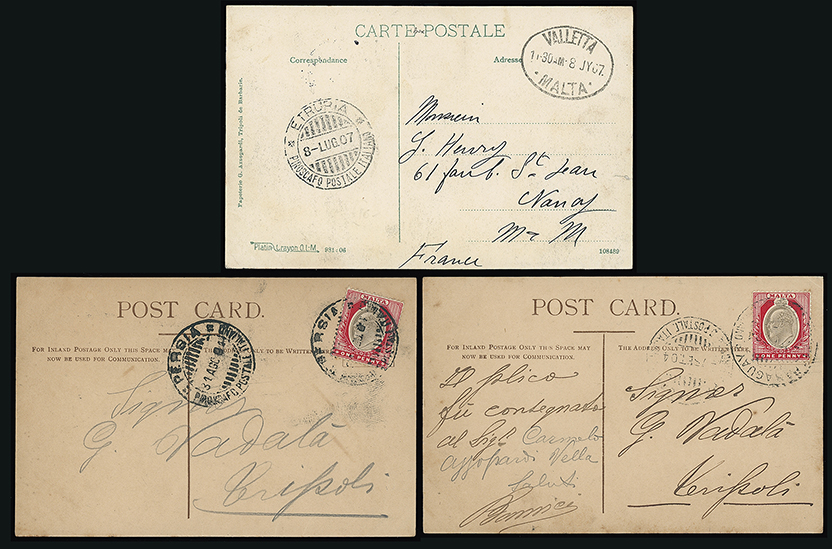 CARTE POSTALE
Correspondance
Adresse
VALLETTA
11·30AM·8 JY07
MALTA
ETRURIA
8-LUG.07
PIROSCAFO POSTALE ITALIANO
Papeterie G. Assegarell, Tripoli de Barbarie.
Monsieur
J. Henry
61 faub. St Jean
Nancy
M-M
France
Platin Crayon O.I.-M. 981:06
108489
POST CARD.
FOR INLAND POSTAGE ONLY THIS SPACE MAY
NOW BE USED FOR COMMUNICATION.
THE ADDRESS ONLY TO BE WRITTEN HERE.
PERSIA
PIROSCAFO POSTALE ITALIANO
PERSIA
MALTA
ONE PENNY
Signor
G. Vadalà
Tripoli
POST CARD.
FOR INLAND POSTAGE ONLY THIS SPACE MAY
NOW BE USED FOR COMMUNICATION.
THE ADDRESS ONLY TO BE WRITTEN HERE.
MALTA
ONE PENNY
Il plico
fu consegnato
al Sigr Carmelo
Azzopardi Vella
Saluti
Signor
G. Vadalà
Tripoli